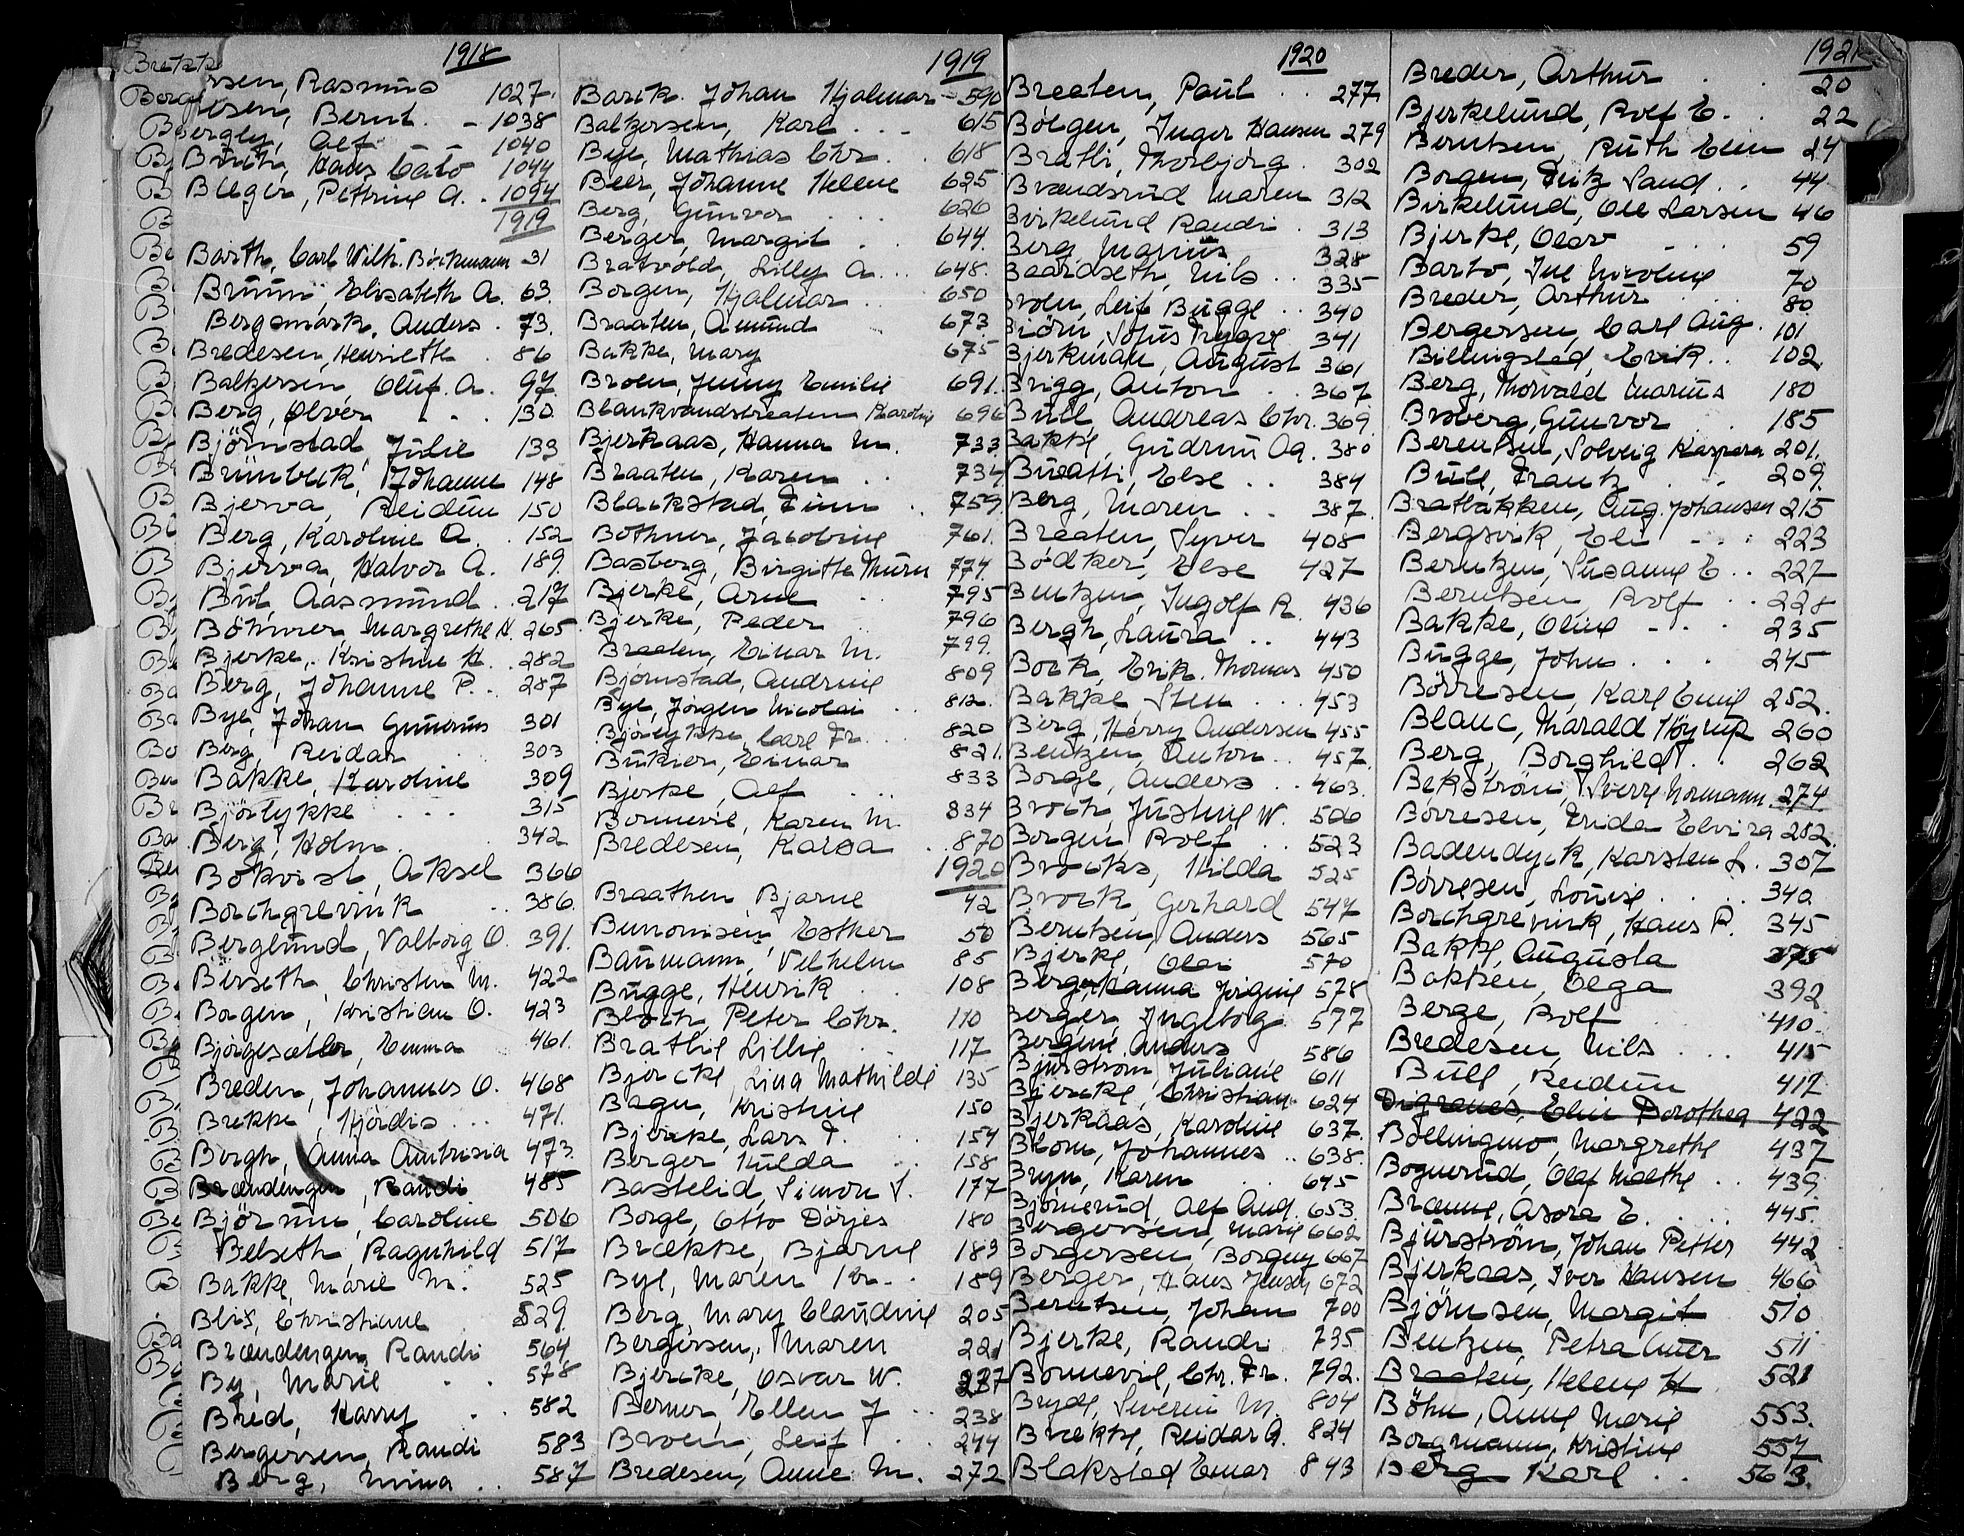 1918
Brekk
rsen, Rasmus 1027.
Borg
sen, Bernt. - 1038
Bergly, Alf 1040
Bruth, Hans Cato 1044
Bleger, Petrine A. . 1094
1919
Barth, Carl Wilh. Böckmann 31
Bruun, Elisabeth A. 63.
Bergsmark, Anders . 73.
Bredesen, Henriette . 86
Baltzersen Oluf. A. 97.
Berg, Olver . . 130.
Björnstad, Julie 133
Brünbeck, Johanne 148
Bjerva, Reidun 150
Berg, Karoline A. . 152
Bjerva, Halvor A. 189.
Bul, Aasmund . . 217
Böhmer, Margrethe H. 265.
Bjerke, Kristine H. . 282
Berg, Johanne P. . 287
Bye, Johan Gunerius 301
Berg, Reidar 303
Bakke, Karoline 309
Björlykke . . . 315
Berg, Holm 342
Bökvist, Aksel 366
Borchgrevink . . 386.
Berglund, Valborg O. 391.
Berseth, Christen M. 422
Borgen, Kristian O. 423
Bjørgesæther, Emma 461.
Breden, Johannes O. 468
Brekke, Hjördis . . . 471.
Borgh, Anna Ambrosia 473.
Brændengen, Randi 485
Björnum, Caroline 506
Belseth, Ragnhild 517
Bakke, Marie M. 525
Blix, Christiane 529.
Brændengen, Randi 564
By, Marie . . 578
Bred, Harry . 582
Bergersen, Randi 583
Berg, Mina . . 587
1919
Barck. Johan Hjalmar - 590
Baltzersen, Karl . . - 615
Bye, Mathias Chr. . . 618
Beer, Johanne Helene 625
Berg, Gunvor . . . 626
Berger, Margit . 644.
Bratvold, Lilly A. . . 648.
Borgen, Hjalmar . . 650
Braaten, Amund 673
Bakke, Mary 675
Broen, Jenny Emilie 691.
Blankvandsbraaten Karoline 696
Bjerkaas, Hanna M. 733.
Braaten, Karen . . 734
Blackstad, Finn . . 759.
Bothner, Jacobine 761.
Basberg, Birgitte Thurn 774.
Bjerke, Arne . 795
Bjerke, Peder . 796
Braaten, Einar M. 799.
Bjørnstad, Andrine 809
Bye, Jørgen Nicolai . . 812.
Bjørlykke, Carl Fr. . . 820
Bukier, Einar 821.
Bjerke, Alf . . . 833
Bonnevie, Karen M. 834
Bredesen, Karsa . . 870
1920
Braathen, Bjarne 42
Esther 50
Baumann, Vilhelm 85
Bugge, Henrik . . 108
Bloch, Peter Chr. 110
Brathil Lillie . 117
Bjercke, Lina Mathilde 135
Bagn, Kristine 150
Bjercke, Lars T. . 154
Berger Hulda . . 158
Bastelid, Simon S. 177
Borge, Otto Dörjes 180
Brække, Bjarne 183
Bye, Maren Kr. . 189
Berg, Mary Claudine 205
Bergersen, Maren 221
Bjercke, Osvar W. 237
Berner, Ellen J . . 238
Broen, Leif . . 244
Bredesen, Anne M. 272
1920
Braaten, Paul . . 277.
Bölgen, Inger Hansen 279
Bratli, Thorbjörg . 302
Brændsrud Maren 312
Birkelund Randi . 313
Berg, Marius 328
Baardseth, Nils . . 335
Broen, Leif Bugge . . 340
Biörn, Sofus Trygve 341
Bjerkman, August 361
Brigg, Anton . . 367
Bull, Andreas Chr. 369
Bakke, Gudrun Aa. 380
Else . . 384
Berg, Maren . . 387.
Braaten, Syver 408
Bödker, Else 427
Bentzen, Ingolf R. 436
Bergh, Laura . . 443
Bock, Erik Thomas 450
Bakke Sten . . . 453
Berg, Harry Andersen 455
Bentzen, Anton . . 457.
Borge, Anders . . 463.
Broch, Justine W. 506
Borgen, Rolf . . 523
Brocks, Hilda 525
Brock, Gerhard 547
Berntsen Anders 565
Bjerke, Olai 570
Berg, Hanna Jorgine 578
Berger, Ingeborg 577
Bergine, Anders 586
Bjurstrøm, Juliane 611
Bjercke, Christian 624
Bjerkaas, Karoline 637.
Blom, Johannes . . 638.
Bryn, Karen . . 645
Bjørnerud, Alf Aug. 653.
Bergersen, Marie 662
Borgersen, Borgny 667
Berger, Hans Jensen 672
Berntsen, Johan 700
Bjerke, Randi . 735.
Bonnevie, Chr. Fr. 792.
Bryde, Severin M. 804
Brække, Reidar G. 824
Blakstad Einar 843
1921
Breder, Arthur . . 20
Bjerkelund, Rolf E. . 22
Berntsen, Ruth Elen 24
Borgen, Fritz Sand . . 44
Birkelund, Ole Larsen 46
Bjerke, Olav - . . 59
Barto, Nicoline 70
Breder, Arthur . . . 80
Bergersen, Carl Aug. 101
Billingstad, Erik . . 102
Berg, Thorvald Marius 180
Broberg, Gunvor . 185
Berentsen, Solveig Kaspara 201.
Bull, Frantz . . 209.
Bratbakken, Aug. Johansen 215
Bergsvik, Eli - . . 223
Berntzen, Susanne E. . . 227
Berntsen, Rolf . . . 228
Bakke, Oline - . . 235
Bugge, John . . . 245
Börresen, Karl Emil 252.
Blanc, Harald Høyrup 260
Berg, Borghild . . 262
Bekström, Sverre Normann 274
Börresen, Frida Elvira 282.
Badendyck, Karsten L. 307
Börresen, Louise . . . . 340
Borchgrevink, Hans P. 345
Bakke, Augusta 375
Bakken, Olga 392
Berge, Rolf . 410.
Bredesen, Nils . . . 415
Bull, Reidun 417
Digranes, Elin Dorothea 422
Böllingmo, Margrethe 437
Bognerud, Olaf Malthe . 439.
Brænne, Asora E. . . . 445.
Bjurström, Johan Petter 442
Bjerkaas, Iver Hansen 466
Björnsen, Margit 510
Bentzen, Petra Cutter 511
Braaten, Helene H 521
Böhn, Anne Marie 553.
Borgmann, Kristine 557
Berg Karl . . 563.